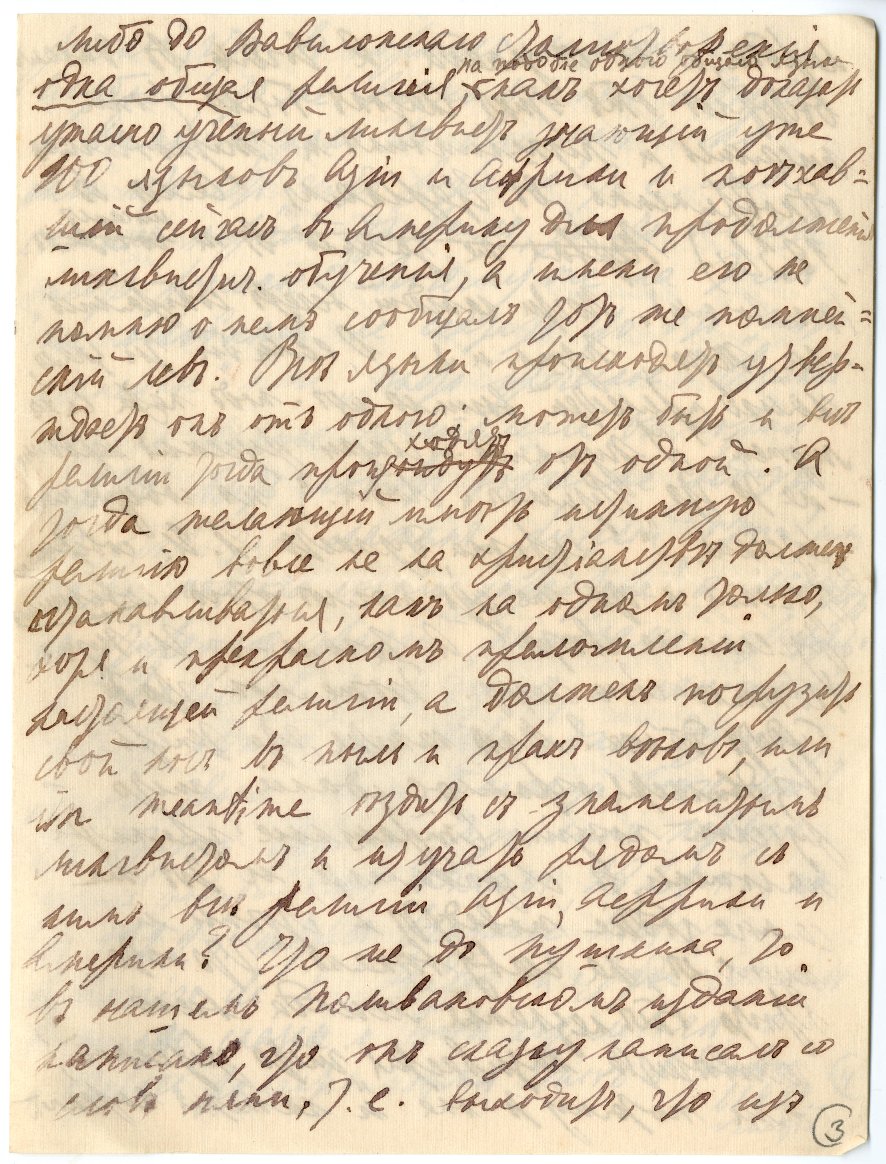 либо до Вавилонскаго столпотворенія
на подобіе одного общаго языка
одна общая религія, какъ хочетъ доказать
ужасно учёный лингвистъ знающій уже
100 языковъ Азіи и Африки и поѣхав=
шій сейчасъ въ Америку для продолженія
лингвистич. обученія, а имени его не
помню о немъ сообщалъ тотъ же
скій левъ. Всѣ языки происходятъ утвер-
ждаетъ онъ отъ одного. можетъ быть и всѣ
ходятъ
религіи тогда произойдутъ отъ одной. А
тогда желающій имѣть истинную
религію вовсе не на христіанствѣ долженъ
останавливаться, какъ на одномъ только,
хотя и прекрасномъ преломленіи
настоящей религіи, а долженъ погрузить
свой носъ въ пыль и прахъ вѣковъ, или
in meantime ѣздить съ знаменитымъ
лингвистомъ и изучать рядомъ съ
нимъ всѣ религіи Азіи, Африки и
Америки? Что же до Пушкина, то
въ нашемъ Поливановскомъ изданіи
написано, что онъ сказку написалъ со
словъ няни, т. е. выходитъ, что изъ
3